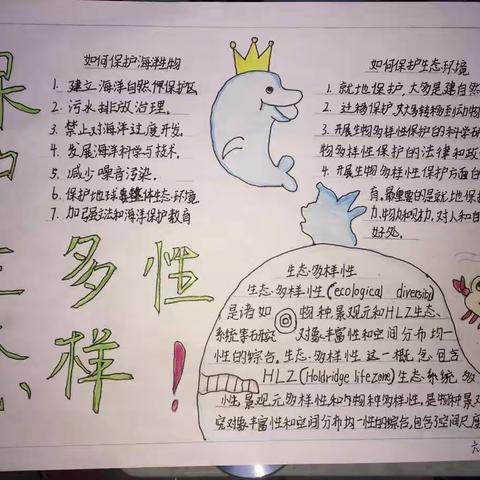 保护
生态
多样性
!
如何保护海洋生物
1. 建立海洋自然保护区
2. 污水排放治理。
3. 禁止对海洋过度开发。
4. 发展海洋科学与技术。
5. 减少噪音污染。
6. 保护地球整体生态环境
7. 加强立法和海洋保护教育
如何保护生态环境
1. 就地保护,大多是建自然
2. 迁地保护,大多转移到动物
3. 开展生物多样性保护的科学研
物多样性保护的法律和政
4. 开展生物多样性保护方面自
育,最重要的是就地保
力,物力和 力,对人和自
好处。
生态多样性
生态多样性(ecological diversity)
是诸如 物种,景观元和HLZ生态、
系统等研究 对象丰富性和空间分布均一
性的综合。生态多样性这一概包含
HLZ(Holdridge lifezone)生态系统多
性,景观元多样性和内物种多样性,是物种景观
究对象丰富性和空间分布均一性的综合,包含了空间尺度
六